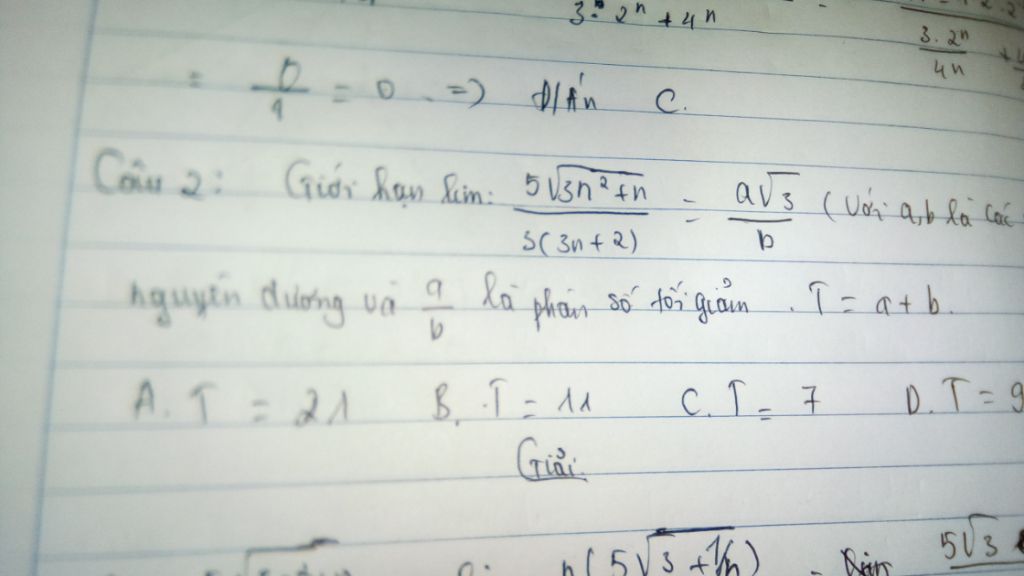 3. 2ⁿ + 4ⁿ
3. 2ⁿ / 4n
= 0/1 = 0 => Đ/Án C.
Câu 2: Giới hạn lim: 5√(3n² + n) / 3(3n + 2) = a√3 / b (với a,b là các
nguyên dương và a/b là phân số tối giản. T = a + b.
A. T = 21 B. T = 11 C. T = 7 D. T = 9
Giải
n(5√(3 + 1/n) 5√3